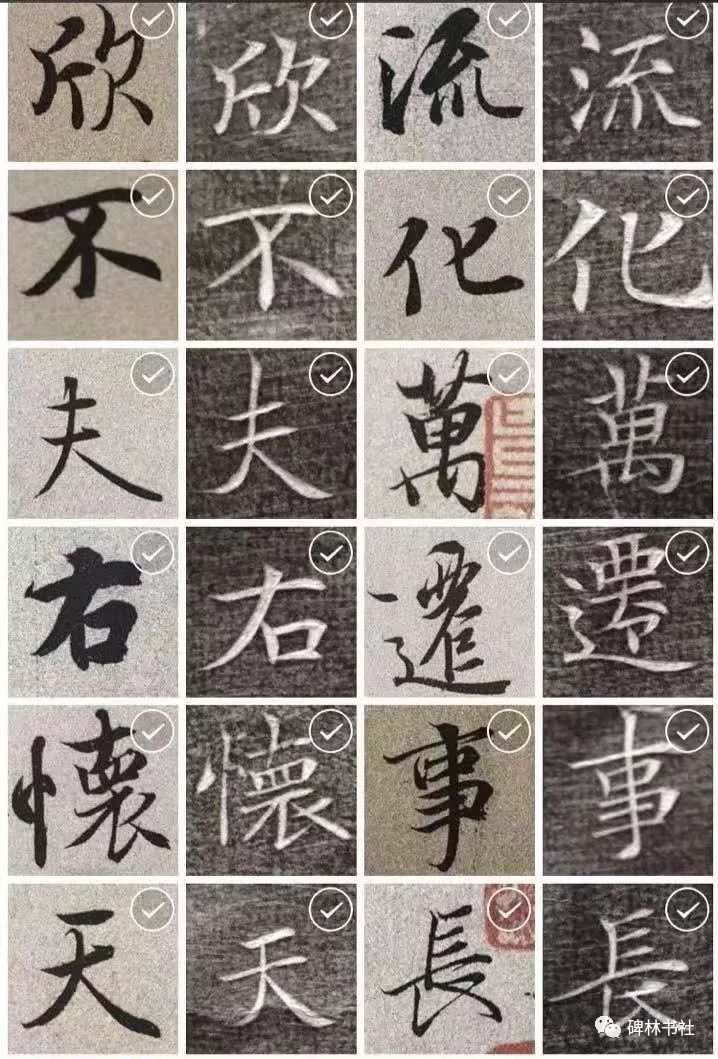 欣欣流流
不不化化
夫夫萬萬
右右遷遷
懷懷事事
天天長長
碑林书社